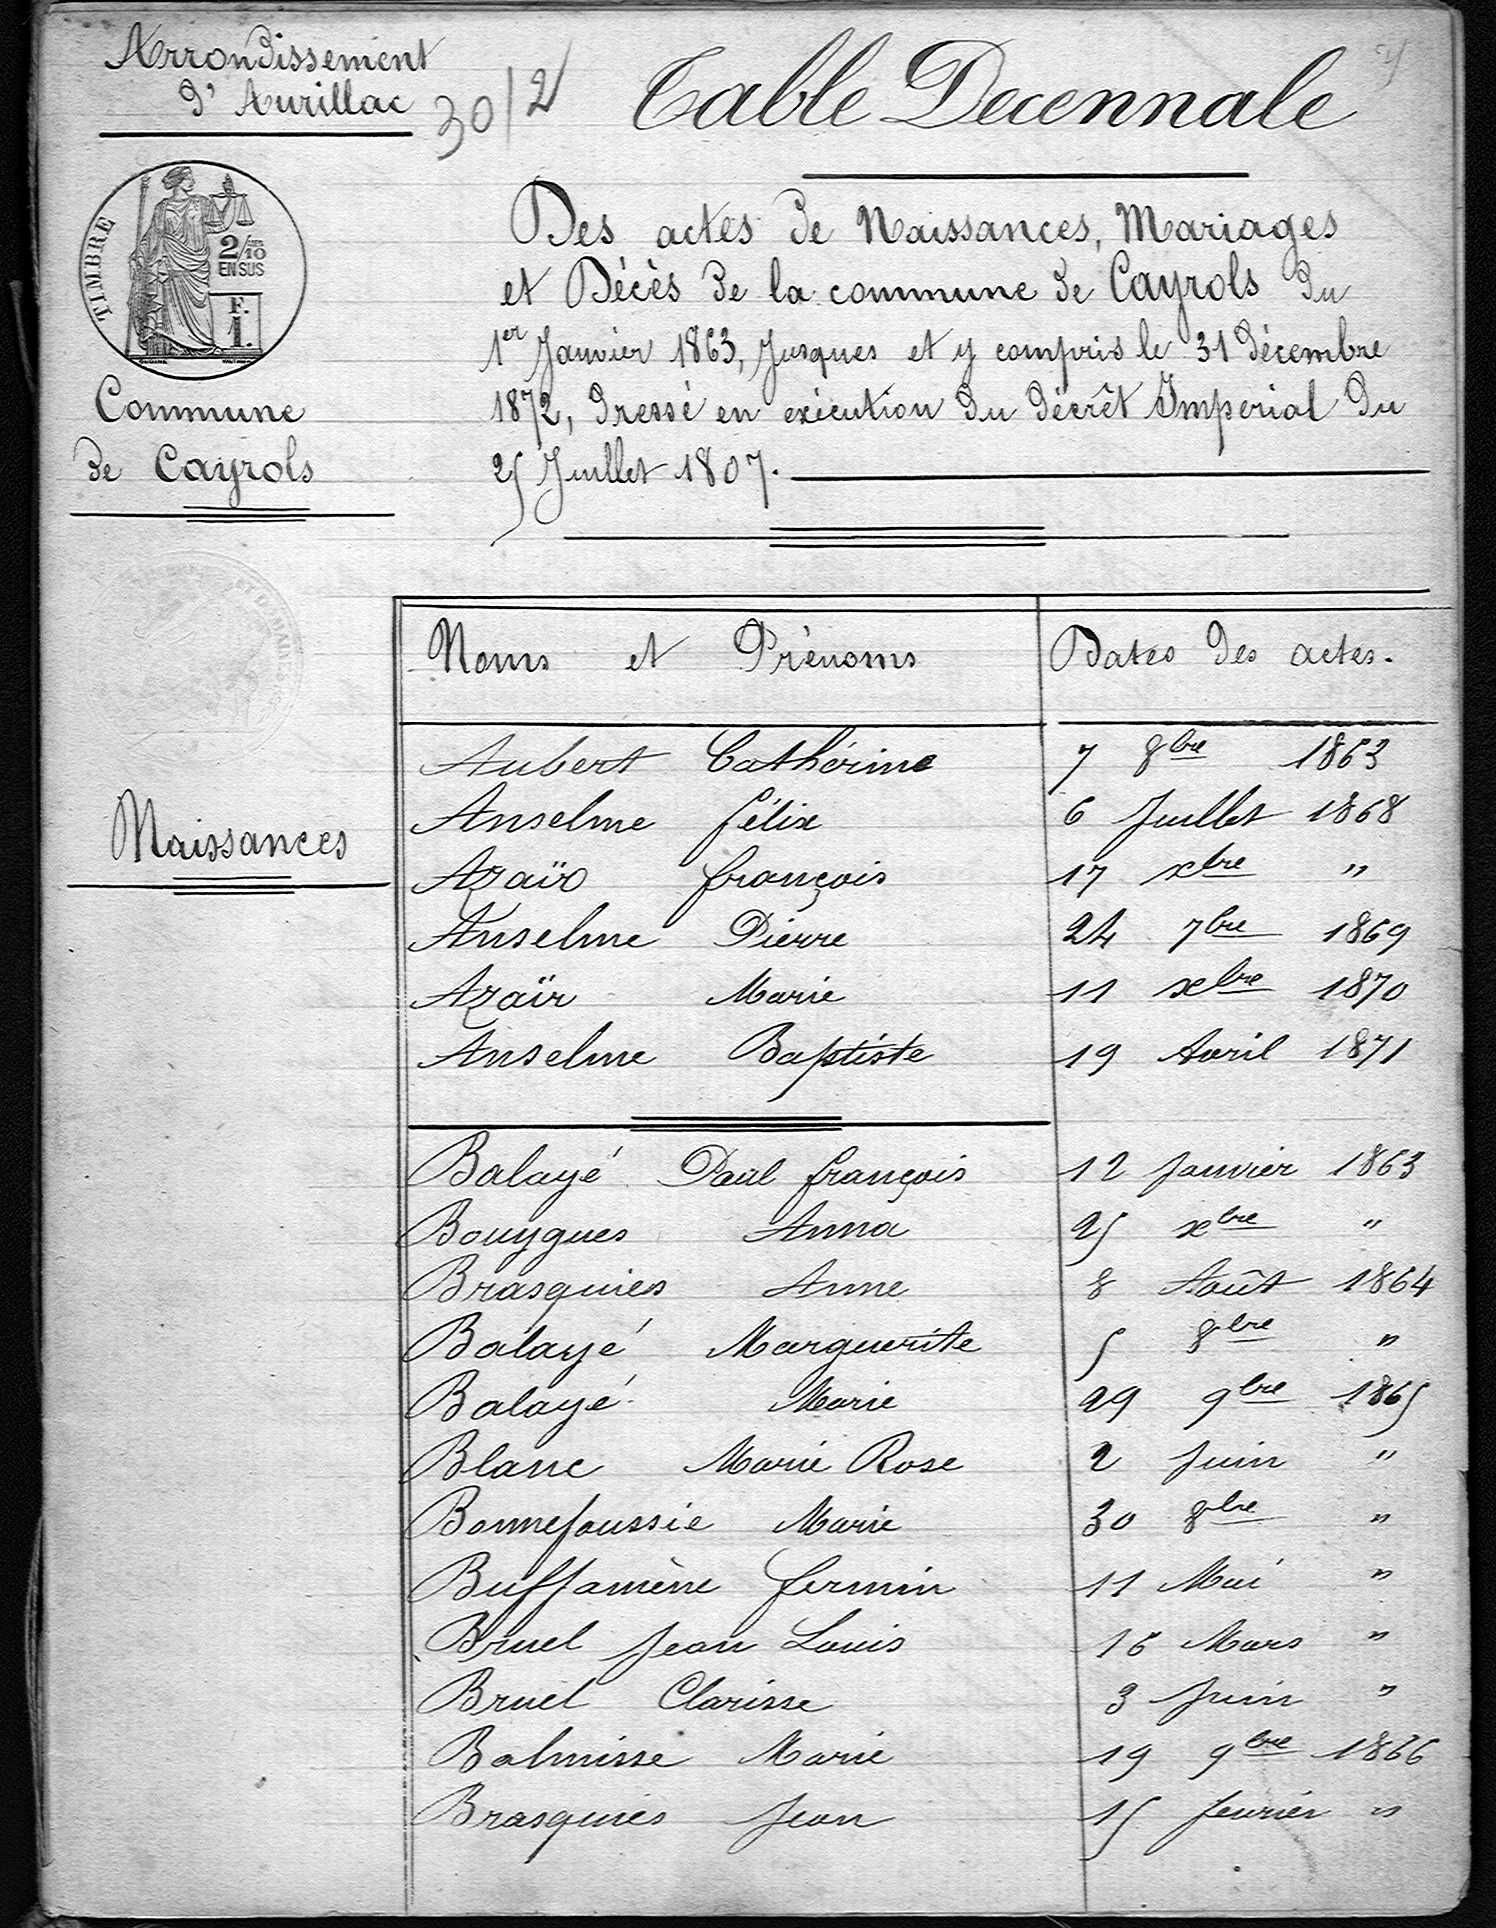 Arrondissement
d'Aurillac
30/2
Table Decennale
TIMBRE
2/10
EN SUS
F.
1.
Des actes de Naissances, Mariages
et Décès de la commune de Cayrols du
1er Janvier 1863, Jusques et y compris le 31 décembre
1872, dressé en exécution du décrêt Impérial du
25 Juillet 1807.
Commune
de Cayrols
Noms et Prénoms Dates des actes.
Naissances
Aubert Cathérine 7 8bre 1863
Anselme félix 6 Juillet 1868
Azaïs françois 17 xbre "
Anselme Pierre 24 7bre 1869
Azaïs Marie 11 xbre 1870
Anselme Baptiste 19 Avril 1871
Balayé Paul françois 12 Janvier 1863
Bouygues Anna 25 xbre "
Brasquies Anne 8 Août 1864
Balayé Marguerite 5 8bre "
Balayé Marie 29 9bre 1865
Blanc Marie Rose 2 Juin "
Bonnefoussie Marie 30 8bre "
Buffamène fermin 11 Mai "
Bruel Jean Louis 16 Mars "
Bruel Clarisse 3 Juin "
Balmisse Marie 19 9bre 1866
Brasquies Jean 15 fevrier "